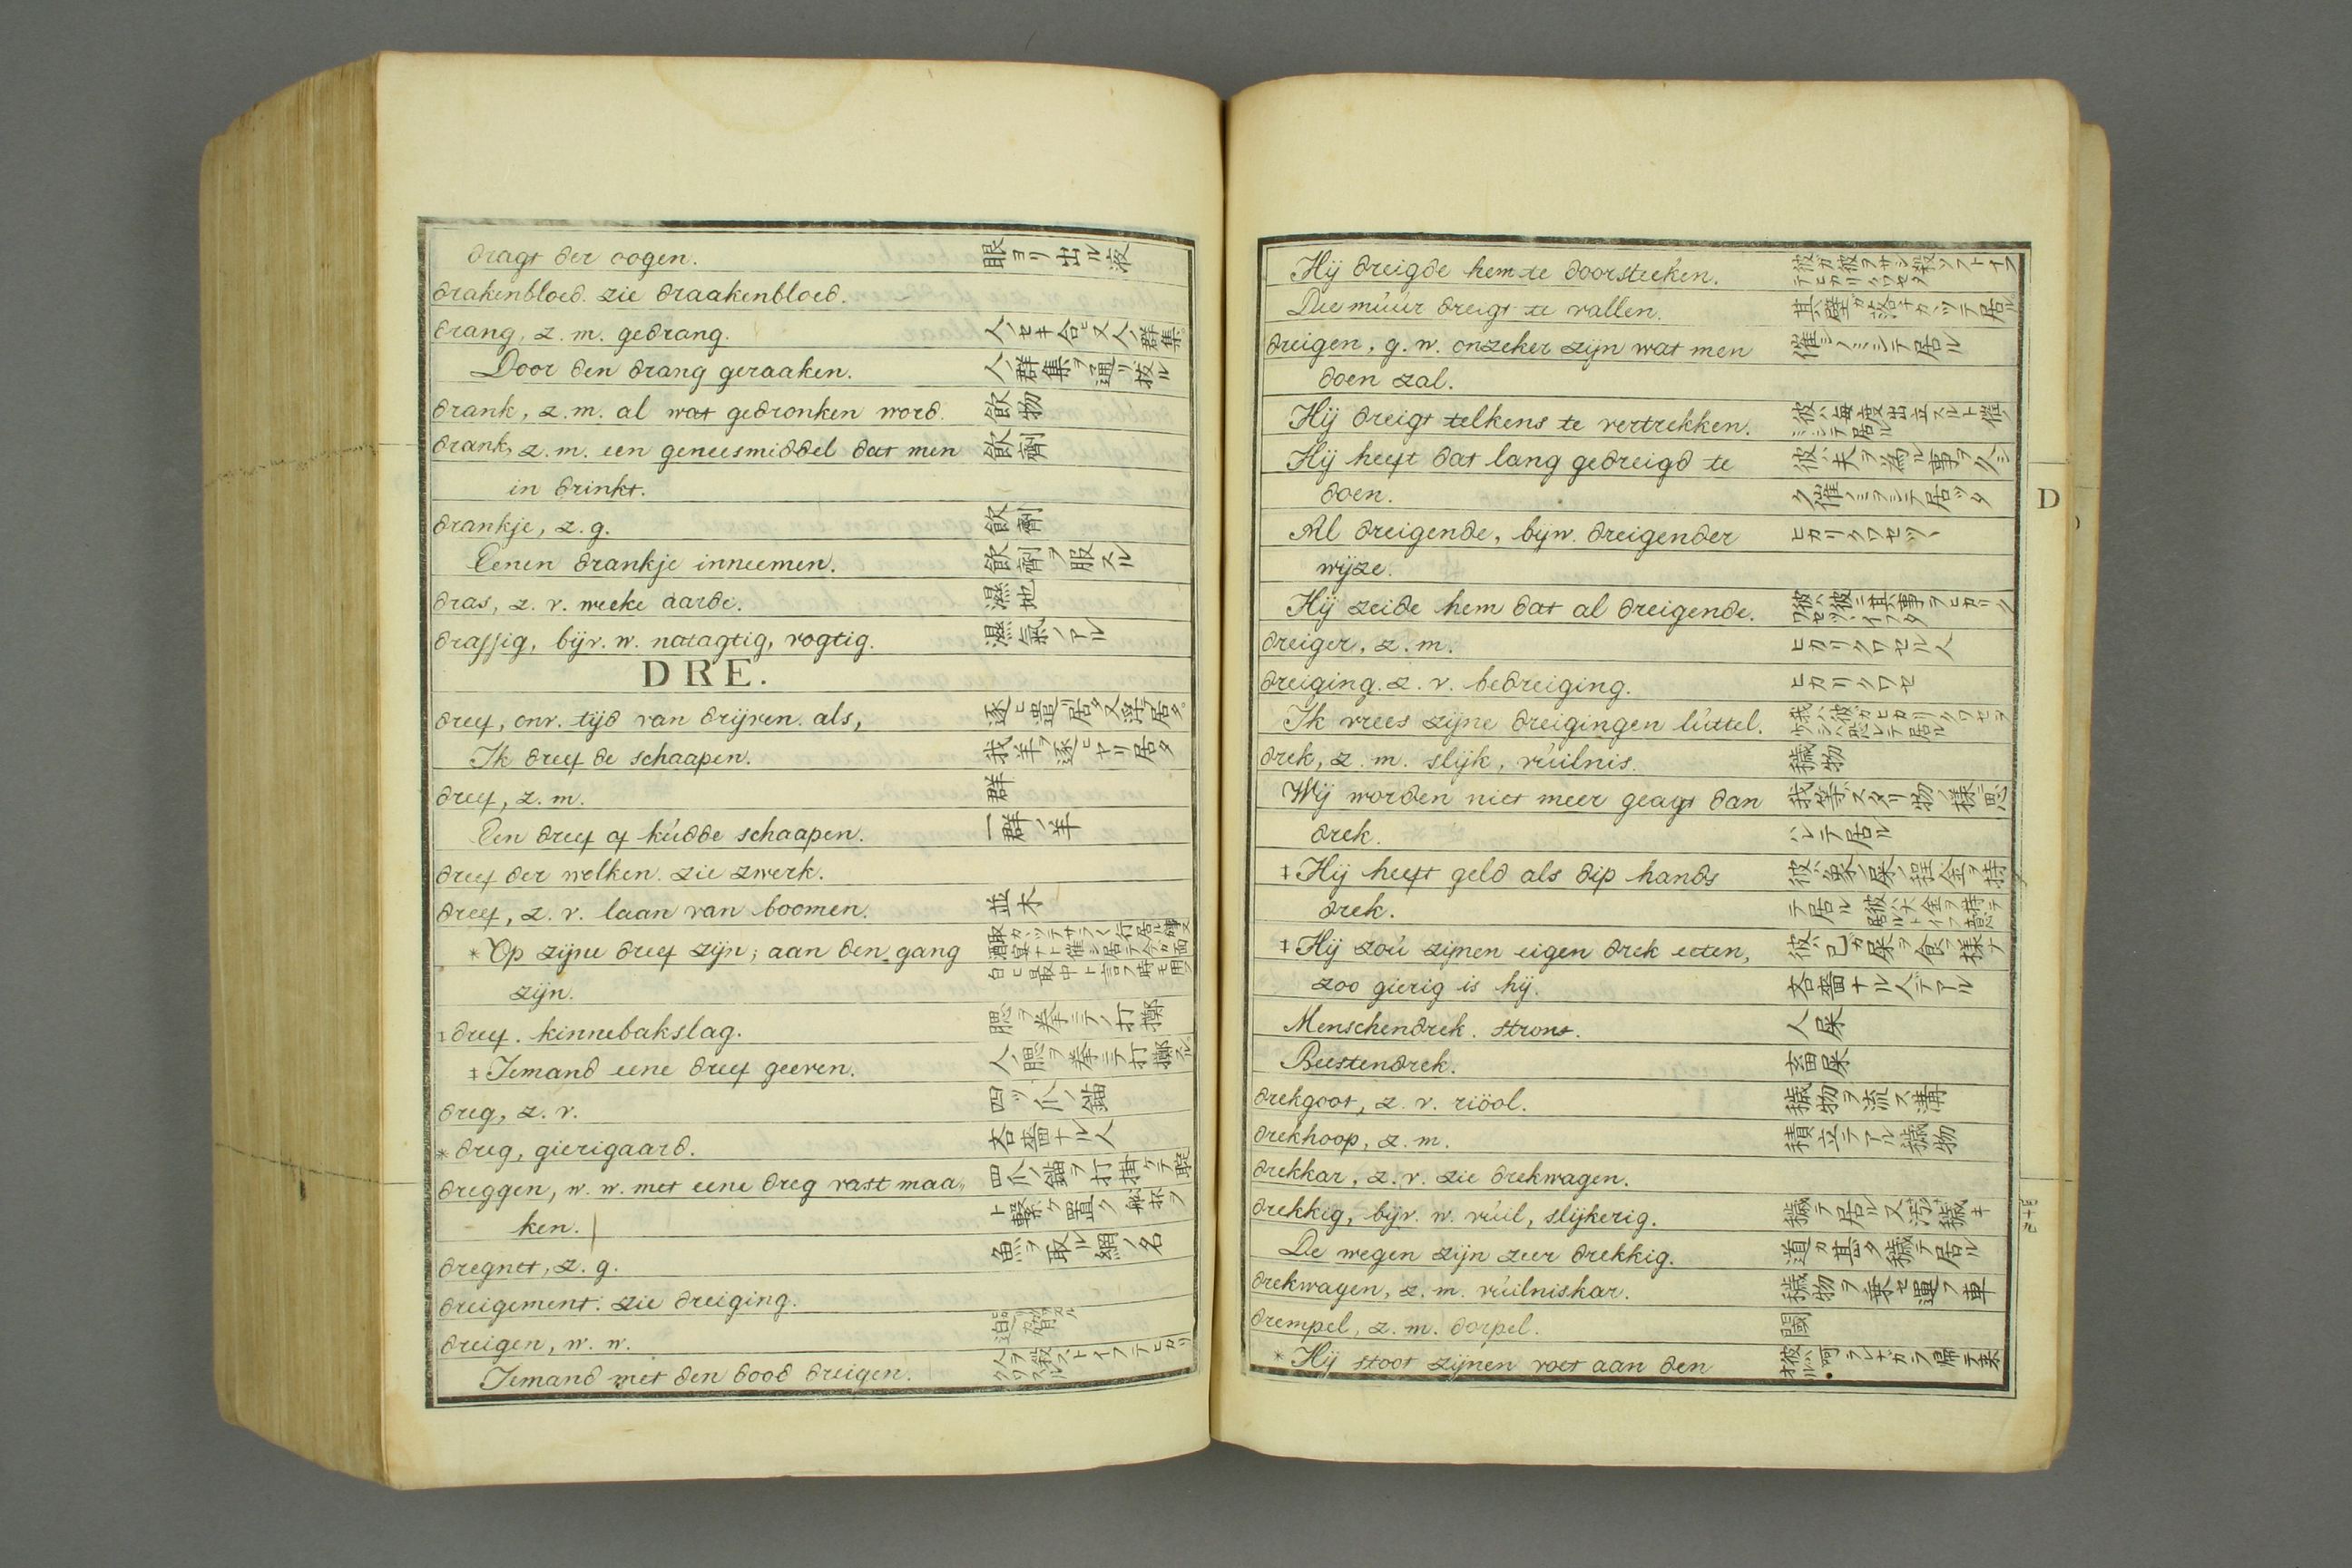 dragt der oogen. 眼ヨリ出ル液
drakenbloed. zie draakenbloed.
drang, z. m. gedrang. 人ノセキ合ヒ又人ノ群集
Door den drang geraaken. 人ノ群集ヲ通リ抜ル
drank, z. m. al wat gedronken word. 飲物
drank, z. m. een geneesmiddel dat men 飲劑
in drinkt.
drankje, z. g. 飲劑
Eenen drankje inneemen. 飲劑ヲ服スル
dras, z. v. weeke aarde. 濕地
drassig, bijv. w. natagtig, vogtig. 濕氣ノアル
DRE.
dreef, onv. tijd van drijven. als,
Ik dreef de schaapen. 我羊ヲ逐ヒヤリ居タ
dreef, z. m. 群
Een dreef of kúdde schaapen. 一群ノ羊
dreef der wolken. zie zwerk.
dreef, z. v. laan van boomen. 並木
* Op zijne dreef zijn; aan den gang
zijn.
‡ dreef. kinnebakslag. 腮ヲ拳ニテノ打擲
‡ Iemand eene dreef geeven. 人ノ腮ヲ拳ニテ打擲スル
dreg, z. v. 四ツ爪ノ錨
* dreg, gierigaard. 吝嗇ナル人
dreggen, w. w. met eene dreg vast maa„
ken.
dregnet, z. g. 魚ヲ取ル網ノ名
dreigement. zie dreiging.
dreigen, w. w.
Iemand met den dood dreigen.
Hij dreigde hem te doorsteeken.
Die múúr dreigt te vallen. 其壁ガ落チカヽツテ居ル
dreigen, g. w. onzeker zijn wat men 催シノミシテ居ル
doen zal.
Hij dreigt telkens te vertrekken. 彼ハ毎度出立スルト催ノミシテ居ル
Hij heeft dat lang gedreigd te 彼ハ夫ヲ為ル事ヲ久シ
doen. ク催ノミヲシテ居ツタ
Al dreigende, bijw. dreigender ヒカリクワセツヽ
wijze.
Hij zeide hem dat al dreigende. 彼ハ彼ニ其事ヲヒカリクワセツヽイフタ
dreiger, z. m. ヒカリクワセル人
dreiging. z. v. bedreiging. ヒカリクワセ
Ik vrees zijne dreigingen lúttel.
drek, z. m. slijk, vúilnis. 穢物
Wij worden niet meer geagt dan 我等ハスタリ物ノ様ニ思
drek. ハレテ居ル
‡ Hij heeft geld als dip hands 彼ハ象ノ屎ノ程金ヲ持
drek. テ居ル 彼ハ大金ヲ持テ居ルトイフ意
‡ Hij zoú zijnen eigen drek eeten, 彼ハ己ガ屎ヲ食フ様ナ
zoo gierig is hij. 吝嗇ナル人デアル
Menschendrek. stront. 人屎
Beestendrek. 畜屎
drekgoot, z. v. riöol. 穢物ヲ流ス溝
drekhoop, z. m. 積立テアル穢物
drekkar, z. v. zie drekwagen.
drekkig, bijv. w. vúil, slijkerig. 穢テ居ル又汚穢キ
De wegen zijn zeer drekkig. 道ガ甚タ穢テ居ル
drekwagen, z. m. vúilniskar. 穢物ヲ乗セ運フ車
drempel, z. m. dorpel. 閾
* Hij stoot zijnen voet aan den
D